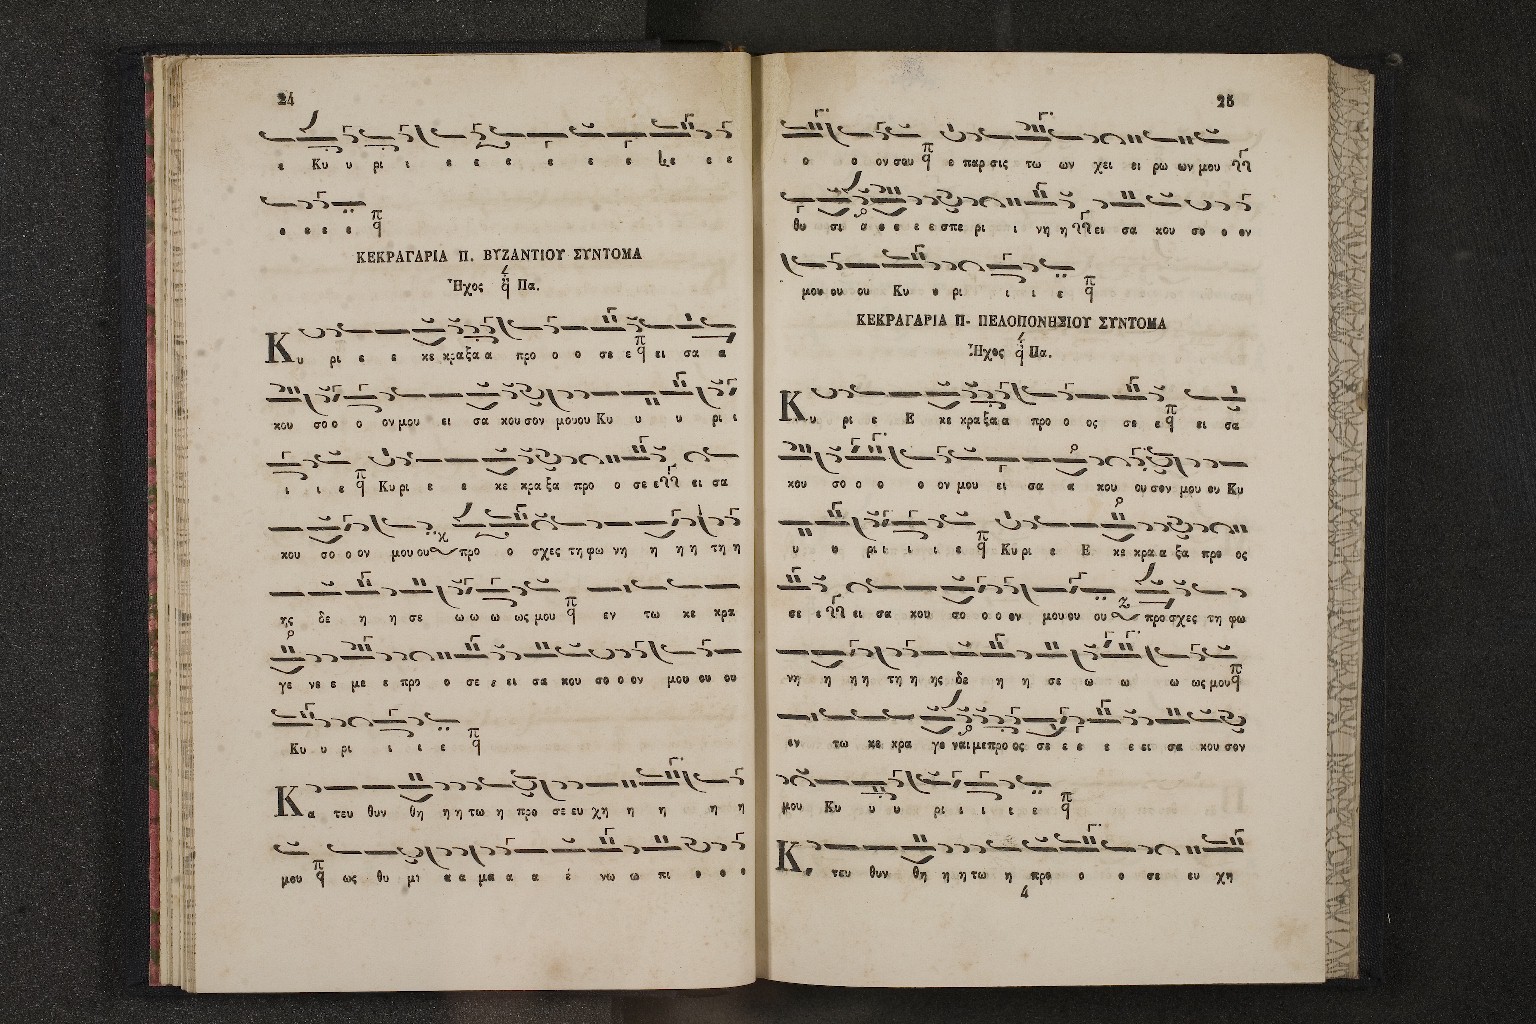 24
ε Κυ υ ρι ι ε ε ε ε ε ε ε ε ε
ε ε ε ε
ΚΕΚΡΑΓΑΡΙΑ Π. ΒΥΖΑΝΤΙΟΥ ΣΥΝΤΟΜΑ
Ἦχος Πα.
Κυ ρι ε ε κε κραξα α προ ο ο σε ε ει σα α
κου σο ο ο ον μου ει σα κου σον μουου Κυ υ υ ρι ι
ι ι ε Κυ ρι ε ε κε κρα ξα προ ο σε ε ει σα
κου σο ο ον μου ου προ ο σχες τη φω νη η η η τη η
ης δε η η σε ω ω ω ως μου εν τω κε κρα
γε νε ε με ε προ ο σε ε ει σα κου σο ο ον μου ου ου
Κυ υ ρι ι ι ε
Κα τευ θυν θη η η τω η προ σε ευ χη η η η η
μου ως θυ μι α α μα α α έ νω ω πι ο ο ο
25
ο ο ον σου ε παρ σις τω ων χει ει ρω ων μου
θυ σι α ε ε ε ε σπε ρι ι νη η ει σα κου σο ο ον
μου ου ου Κυ υ ρι ι ι ε
ΚΕΚΡΑΓΑΡΙΑ Π. ΠΕΛΟΠΟΝΗΣΙΟΥ ΣΥΝΤΟΜΑ
Ἦχος Πα.
Κυ ρι ε Ε κε κρα ξα α προ ο ος σε ε ει σα
κου σο ο ο ο ον μου ει σα α κου ου σον μου ου Κυ
υ υ ρι ι ι ι ε Κυ ρι ε Ε κε κρα α ξα προ ος
σε ε ει σα κου σο ο ο ον μου ου ου προ σχες τη φω
νη η η η τη η ης δε η η σε ω ω ω ως μου
εν τω κε κρα γε ναι με προ ος σε ε ε ε ε ει σα κου σον
μου Κυ υ υ ρι ι ι ι ε
Κα τευ θυν θη η η τω η προ ο ο σε ευ χη
4